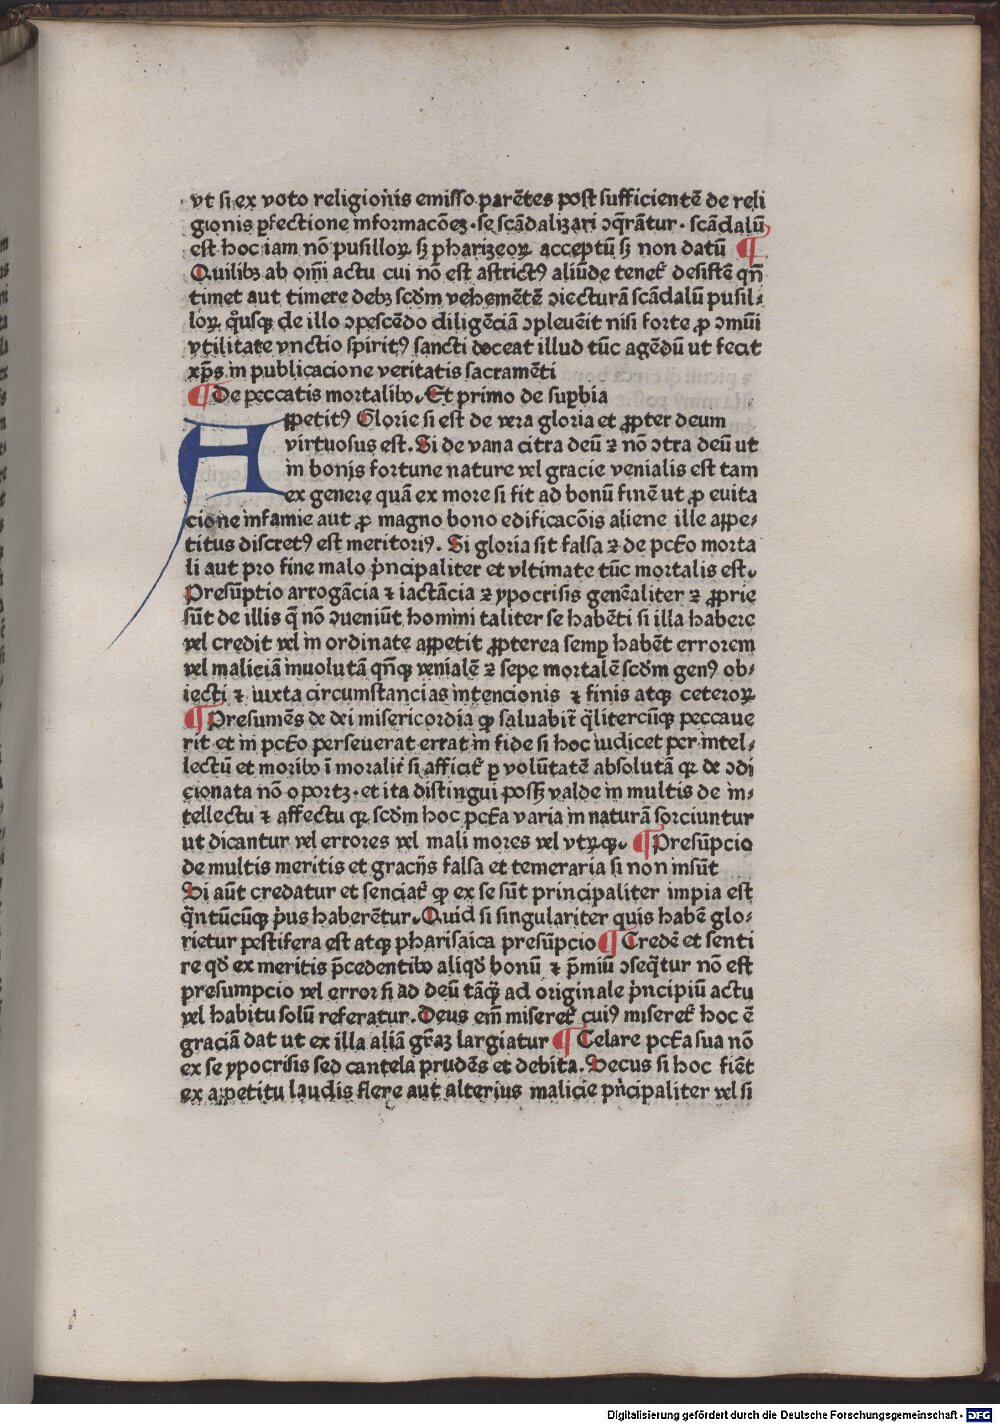 vt si ex voto religiōnis emisso parētes post sufficientē de reli
gionis ꝑfectione informacōeꝫ · se scādalizari ꝯq̄rātur · scādalū
est hoc iam nō pusilloꝝ sꝫ pharizeoꝝ acceptū sꝫ non datū ¶
Quilibꝫ ab om̄i actu cui nō est astrictꝰ aliūde teneť desistē qn̄
timet aut timere debꝫ scd̄m vehemētē ꝯiecturā scādalū pusil⸗
loꝝ. q̊usqꝫ de illo ꝯpescēdo diligēciā ꝯpleuēit nisi forte ꝓ ꝯmūi
vtilitate vnctio spiritꝰ sancti doceat illud tūc agēdū ut fecit
xp̄s in publicacione veritatis sacramēti
¶ De peccatis mortalibꝰ. Et primo de suꝑbia
Aꝑpetitꝰ Glorie si est de vera gloria et ꝓpter deum
virtuosus est. Si de vana citra deū ⁊ nō ꝯtra deū ut
in bonis fortune nature vel gracie venialis est tam
ex genere quā ex more si fit ad bonū finē ut ꝓ euita
cione infamie aut ꝓ magno bono edificacōis aliene ille appe⸗
titus discretꝰ est meritoriꝰ. Si gloria sit falsa ⁊ de pctō morta
li aut pro fine malo pͥncipaliter et vltimate tūc mortalis est.
Presūptio arrogācia ⁊ iactācia ⁊ ypocrisis genēaliter ⁊ ꝓprie
sūt de illis q̄ nō ꝯueniūt homini taliter se habēti si illa habere
vel credit vel in ordinate appetit ꝓpterea semꝑ habēt errorem
vel maliciā inuolutā qn̄qꝫ venialē ⁊ sepe mortalē scd̄m genꝰ ob⸗
iecti ⁊ iuxta circumstancias intencionis ⁊ finis atqꝫ ceteroꝝ
¶ Presumēs de dei misericordia ꝙ saluabiť q̄litercūqꝫ peccaue
rit et in pctō perseuerat errat in fide si hoc iudicet per intel⸗
lectū et moribꝰ ī moraliť si afficiť ꝑ volūtatē absolutā qꝛ de ꝯdi
cionata nō oportꝫ · et ita distingui possꝫ valde in multis de in⸗
tellectu ⁊ affectu qꝛ scd̄m hoc pctā varia in naturā sorciuntur
ut dicantur vel errores vel mali mores vel vtꝝqꝫ. ¶ Presūpcio
de multis meritis et gracijs falsa et temeraria si non insūt
Si aūt credatur et senciať ꝙ ex se sūt principaliter impia est
q̄ntūcūqꝫ pͥus haberētur. Quid si singulariter quis habē glo⸗
rietur pestifera est atqꝫ pharisaica presūpcio ¶ Credē et senti
re qd̄ ex meritis p̄cedentibꝰ aliqd̄ bonū ⁊ p̄miū ꝯseq̄tur nō est
presumpcio vel error si ad deū tāqꝫ ad originale pͥncipiū actu
vel habitu solū referatur. Deus em̄ misereť cuiꝰ misereť hoc ē
graciā dat ut ex illa aliā gr̄aꝫ largiatur ¶ Celare pctā sua nō
ex se ypocrisis sed cautela prudēs et debita. Secus si hoc fiēt
ex appetitu laudis flere aut alterius malicie pͥncipaliter vel si
Digitalisierung gefördert durch die Deutsche Forschungsgemeinschaft - DFG